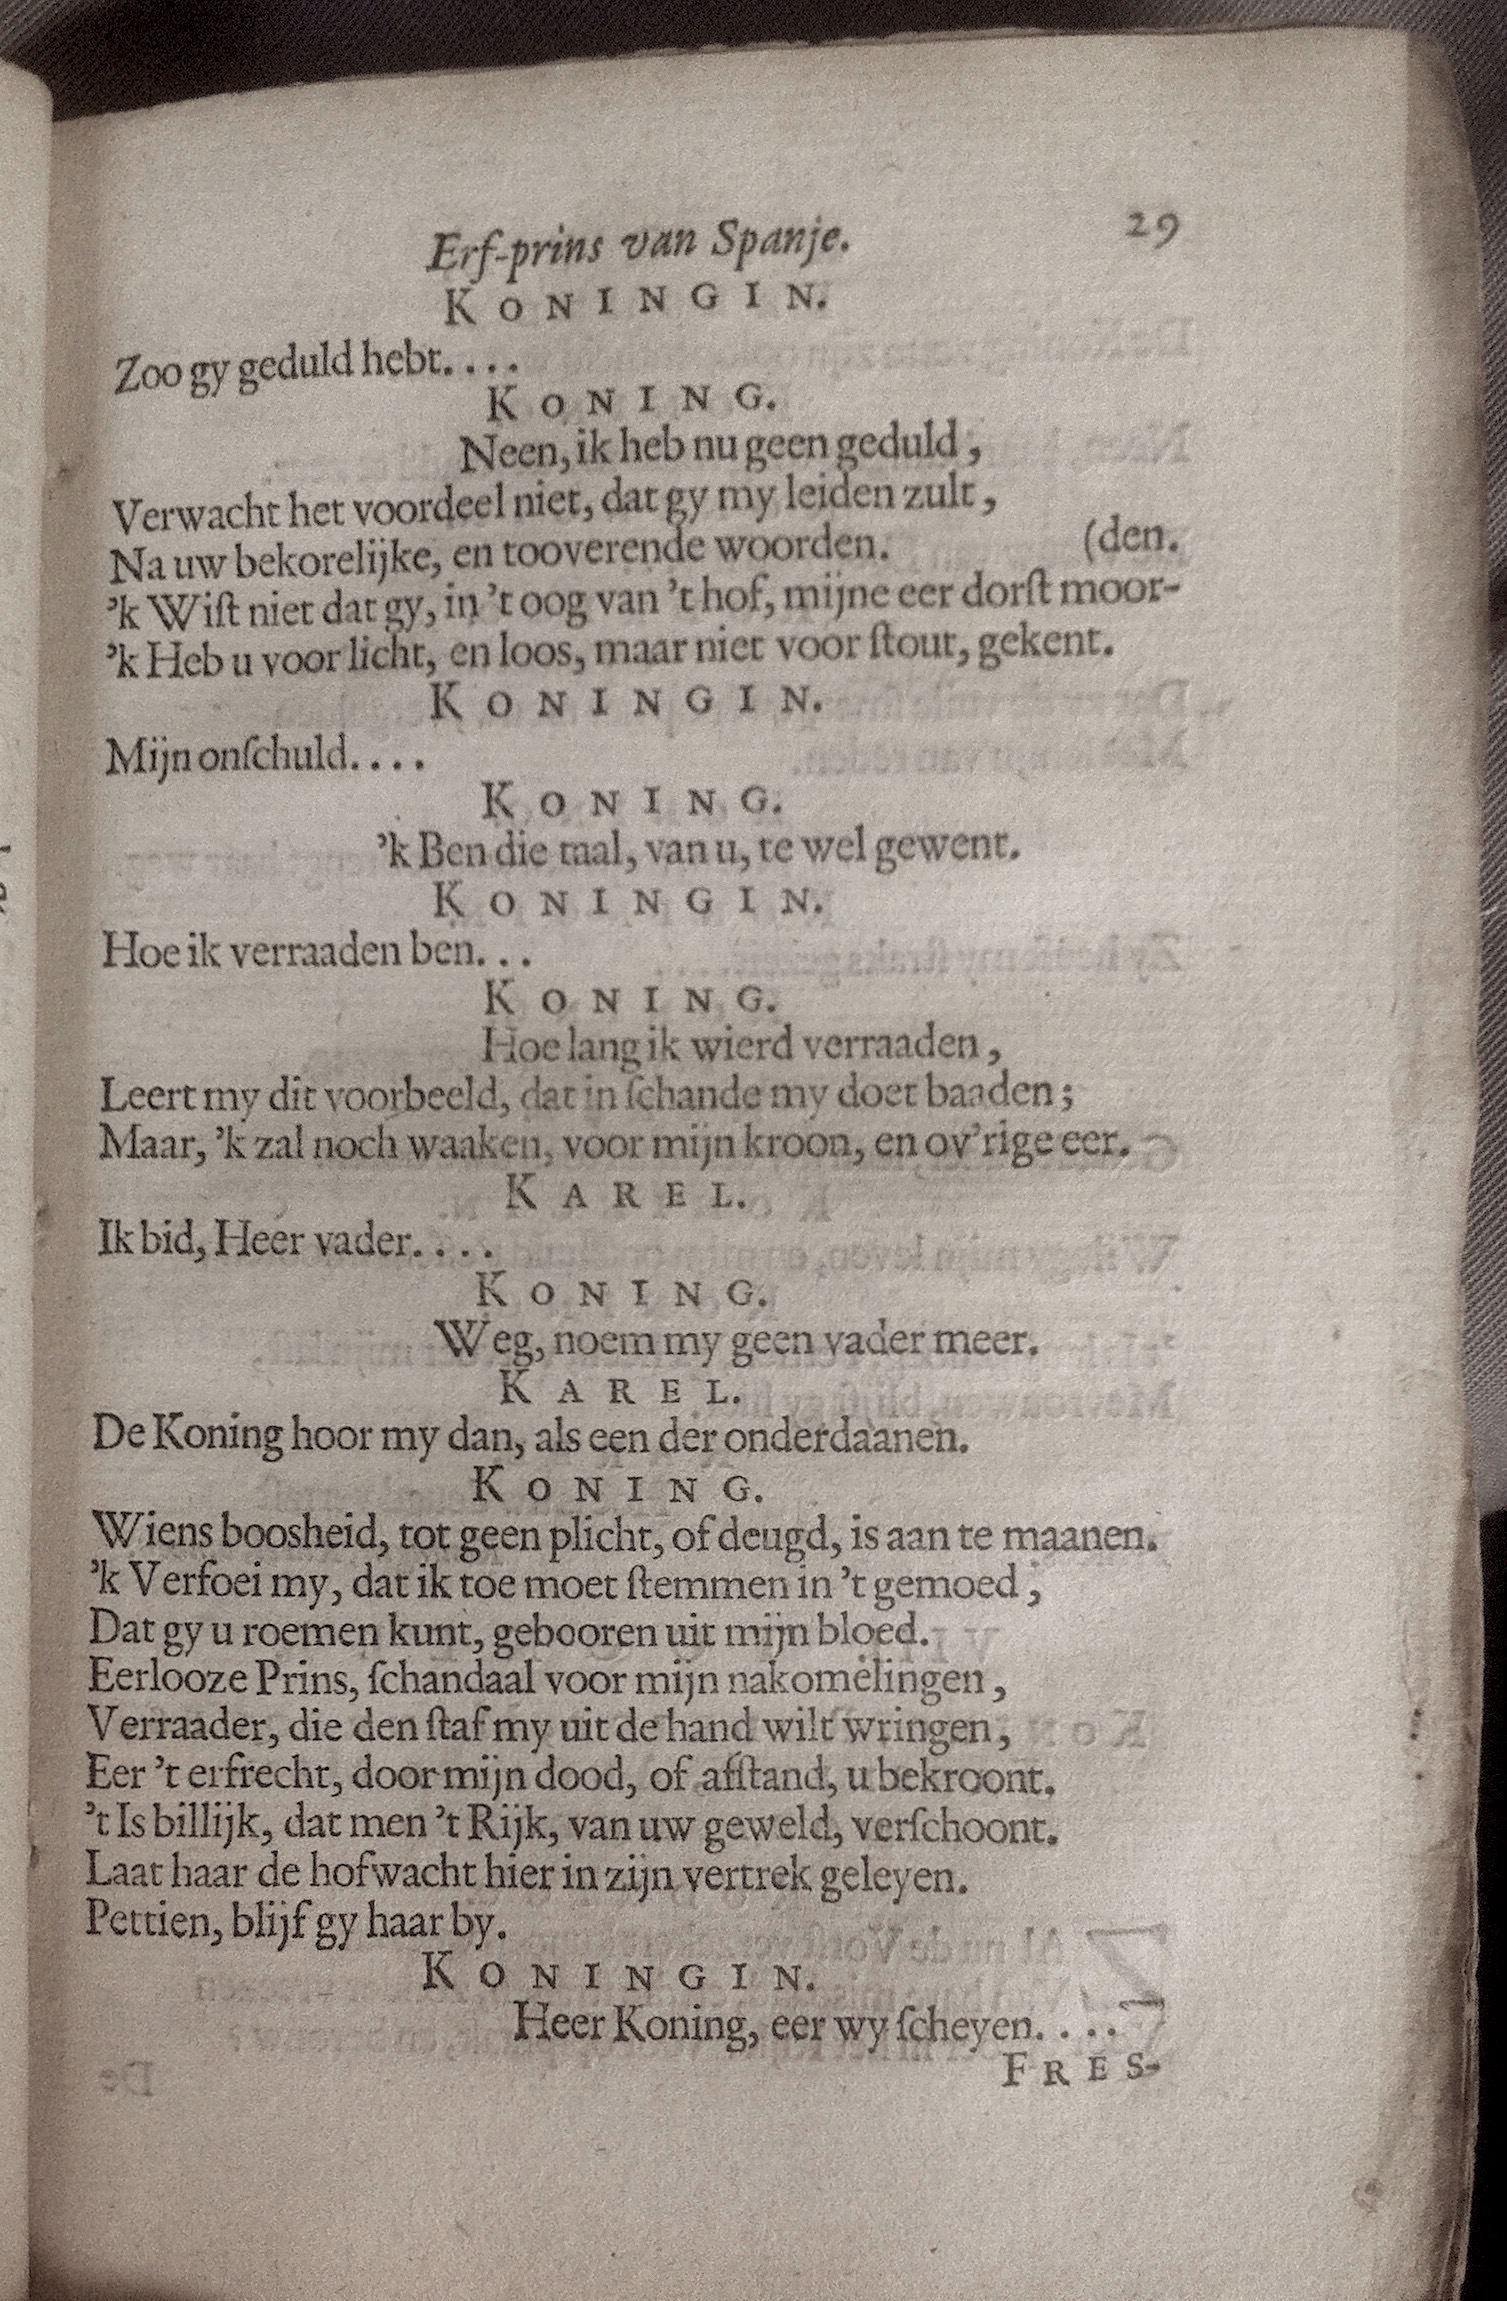 Erf-prins van Spanje. 29
KONINGIN.
Zoo gy geduld hebt....
KONING.
Neen, ik heb nu geen geduld,
Verwacht het voordeel niet, dat gy my leiden zult,
Na uw bekorelijke, en tooverende woorden. (den.
’k Wiſt niet dat gy, in ’t oog van ’t hof, mijne eer dorſt moor-
’k Heb u voor licht, en loos, maar niet voor ſtout, gekent.
KONINGIN.
Mijn onſchuld....
KONING.
’k Ben die taal, van u, te wel gewent.
KONINGIN.
Hoe ik verraaden ben...
KONING.
Hoe lang ik wierd verraaden,
Leert my dit voorbeeld, dat in ſchande my doet baaden;
Maar, ’k zal noch waaken, voor mijn kroon, en ov’rige eer.
KAREL.
Ik bid, Heer vader....
KONING.
Weg, noem my geen vader meer.
KAREL.
De Koning hoor my dan, als een der onderdaanen.
KONING.
Wiens boosheid, tot geen plicht, of deugd, is aan te maanen.
’k Verfoei my, dat ik toe moet ſtemmen in ’t gemoed,
Dat gy u roemen kunt, gebooren uit mijn bloed.
Eerlooze Prins, ſchandaal voor mijn nakomelingen,
Verraader, die den ſtaf my uit de hand wilt wringen,
Eer ’t erfrecht, door mijn dood, of afſtand, u bekroont.
’t Is billijk, dat men ’t Rijk, van uw geweld, verſchoont.
Laat haar de hofwacht hier in zijn vertrek geleyen.
Pettien, blijf gy haar by.
KONINGIN.
Heer Koning, eer wy ſcheyen....
FRES-